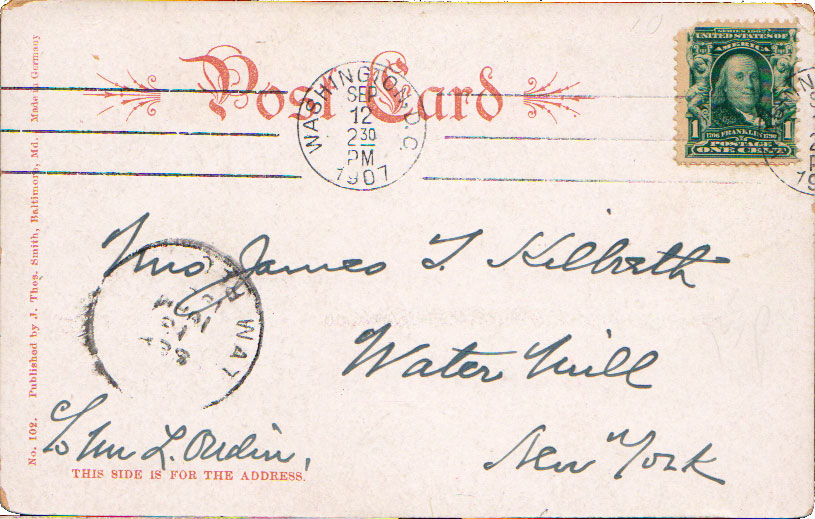 Post Card
WASHINGTON, D.C.
SEP
12
2 30
PM
1907
SERIES 1902
UNITED STATES OF
AMERICA
1 1706 FRANKLIN 1790 1
POSTAGE
ONE CENT
Mrs James T. Kilbreth
Water Mill
New York
WAT
c/o Mr L.
THIS SIDE IS FOR THE ADDRESS.
No. 102. Published by J. Thos. Smith, Baltimore, Md. Made in Germany